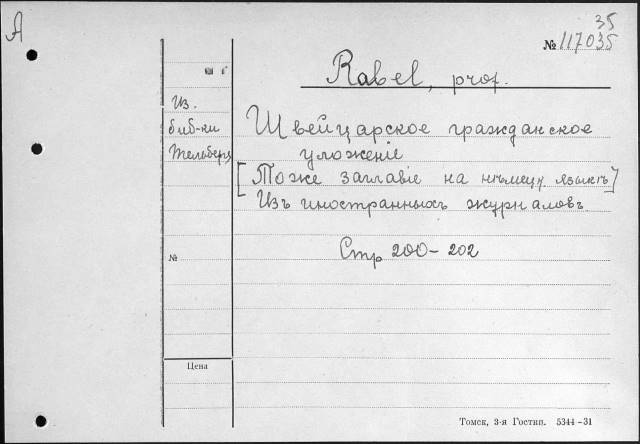 А
35
№ 117035
Rabel, prof.
Из.
биб-ки
Швейцарское гражданское
уложеніе
[Тоже заглавіе на нѣмецк. языкѣ]
Изъ иностранныхъ журналовъ
Стр 200-202
№
Цена
Томск, 3-я Гостип. 5344-31